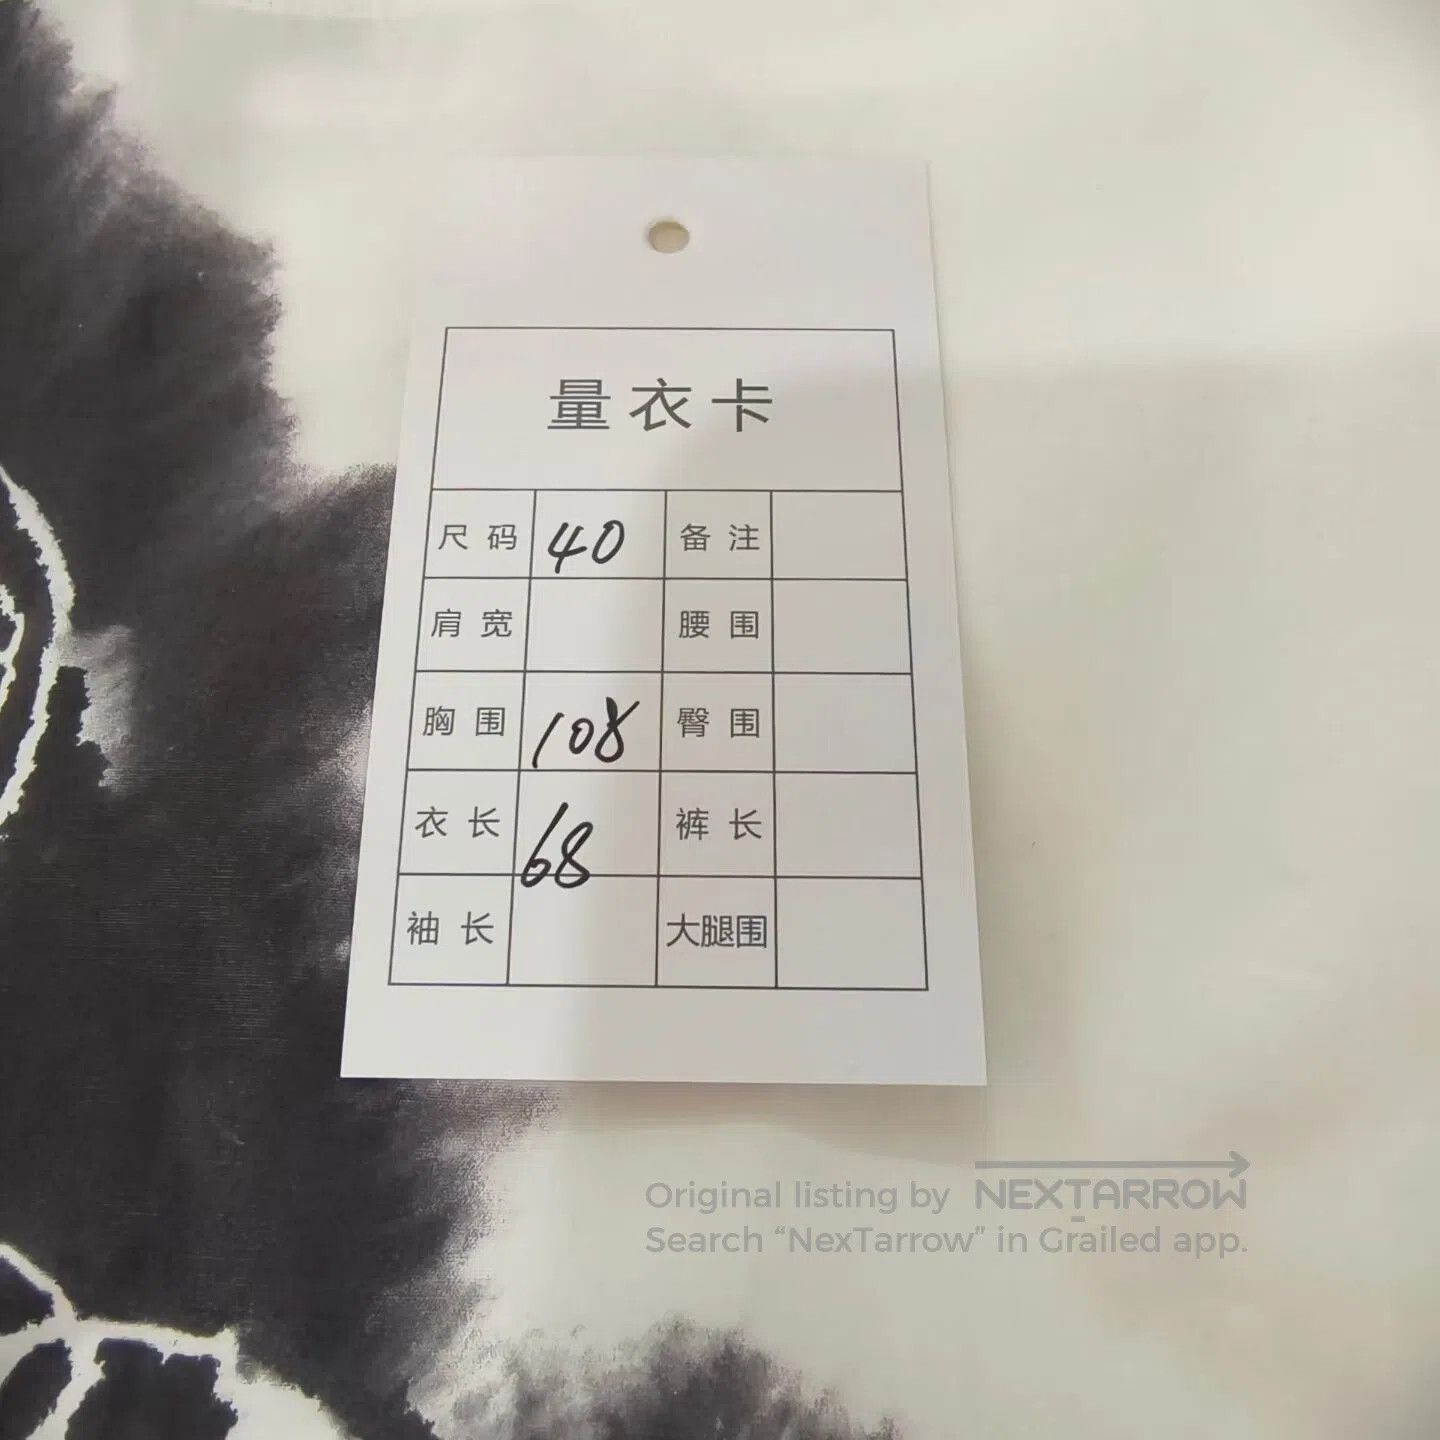 量衣卡
尺码 40 备注
肩宽 腰围
胸围 108 臀围
衣长 68 裤长
袖长 大腿围
Original listing by NEXTARROW
Search “NexTarrow” in Grailed app.